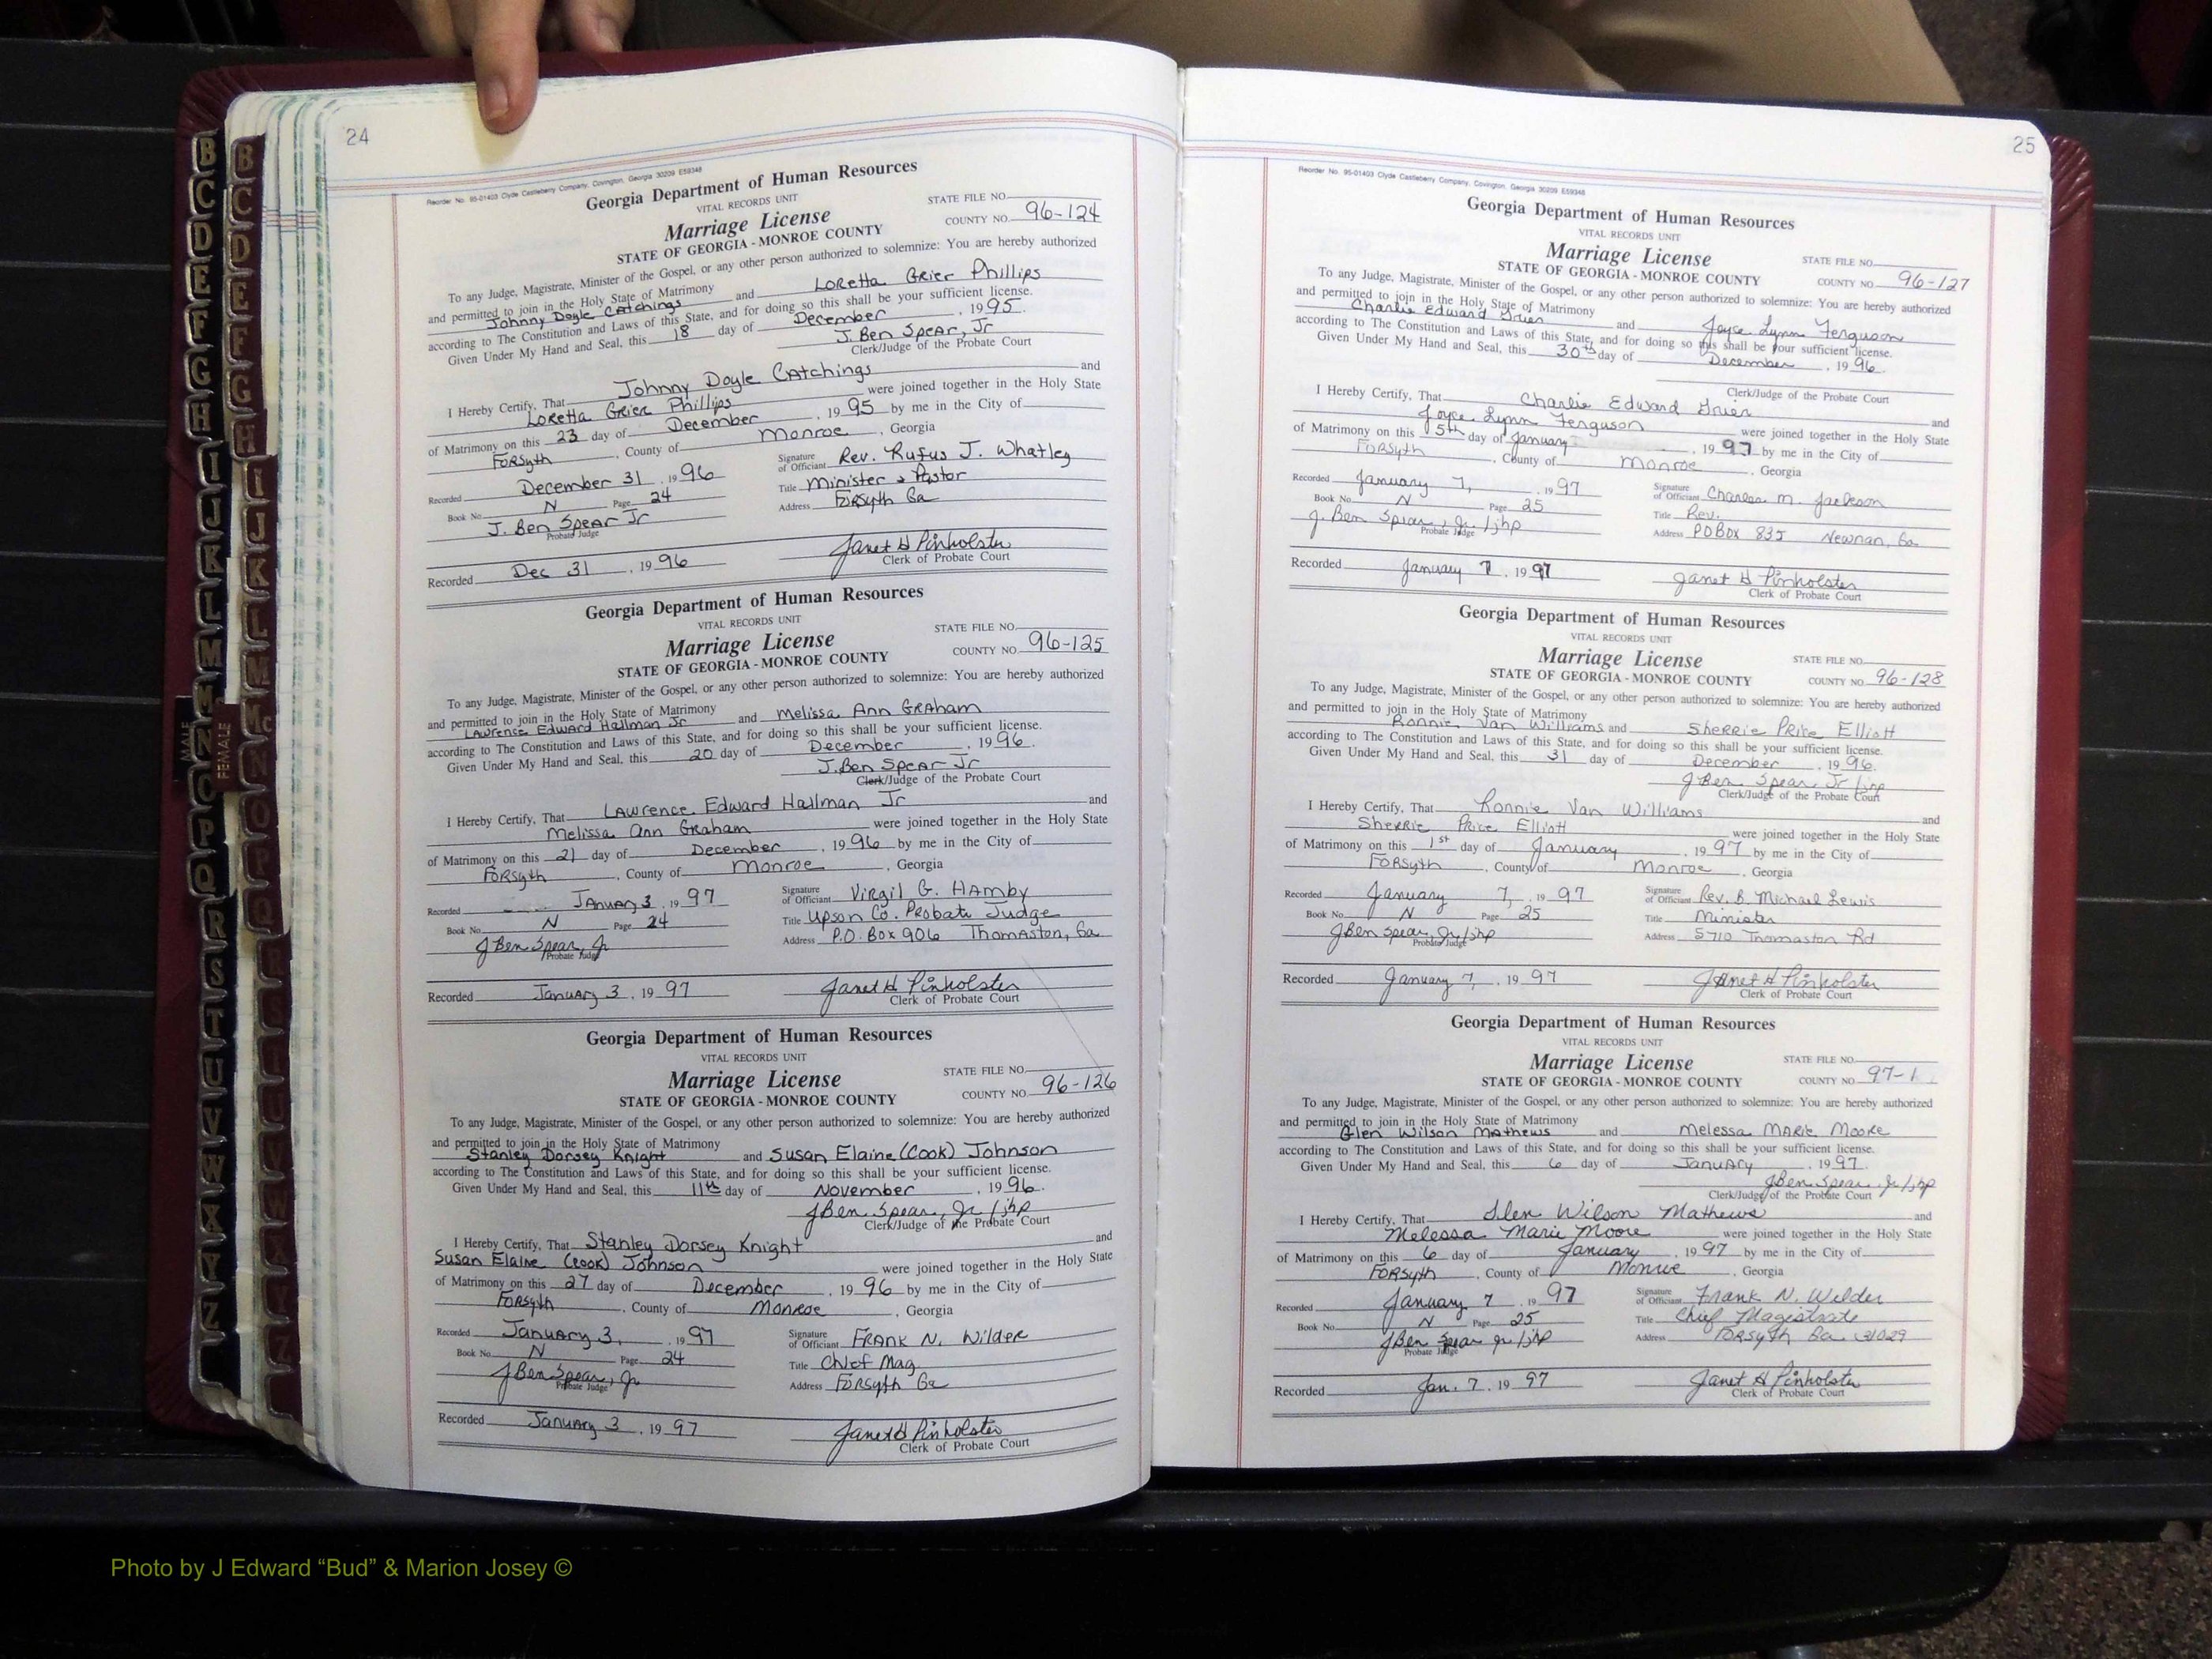 24
Reorder No. 95-01403 Clyde Castleberry Company, Covington, Georgia 30209 E59348
Georgia Department of Human Resources
VITAL RECORDS UNIT
Marriage License
STATE OF GEORGIA - MONROE COUNTY
STATE FILE NO.
COUNTY NO. 96-124
To any Judge, Magistrate, Minister of the Gospel, or any other person authorized to solemnize: You are hereby authorized
and permitted to join in the Holy State of Matrimony
Johnny Doyle Catchings and Loretta Grier Phillips
according to The Constitution and Laws of this State, and for doing so this shall be your sufficient license.
Given Under My Hand and Seal, this 18 day of December, 1995.
J. Ben Spear, Jr
Clerk/Judge of the Probate Court
I Hereby Certify, That Johnny Doyle Catchings and
Loretta Grier Phillips were joined together in the Holy State
of Matrimony on this 23 day of December, 1995 by me in the City of
Forsyth, County of Monroe, Georgia
Recorded December 31, 1996
Book No. N Page 24
J. Ben Spear Jr
Probate Judge
Signature of Officiant Rev. Rufus J. Whatley
Title Minister & Pastor
Address Forsyth Ga
Recorded Dec 31, 1996
Janet H Pinholster
Clerk of Probate Court
Georgia Department of Human Resources
VITAL RECORDS UNIT
Marriage License
STATE OF GEORGIA - MONROE COUNTY
STATE FILE NO.
COUNTY NO. 96-125
To any Judge, Magistrate, Minister of the Gospel, or any other person authorized to solemnize: You are hereby authorized
and permitted to join in the Holy State of Matrimony
Lawrence Edward Hallman Jr and Melissa Ann Graham
according to The Constitution and Laws of this State, and for doing so this shall be your sufficient license.
Given Under My Hand and Seal, this 20 day of December, 1996.
J. Ben Spear Jr
Clerk/Judge of the Probate Court
I Hereby Certify, That Lawrence Edward Hallman Jr and
Melissa Ann Graham were joined together in the Holy State
of Matrimony on this 21 day of December, 1996 by me in the City of
Forsyth, County of Monroe, Georgia
Recorded January 3, 1997
Book No. N Page 24
J Ben Spear, Jr
Probate Judge
Signature of Officiant Virgil G. Hamby
Title Upson Co. Probate Judge
Address P.O. Box 906 Thomaston, Ga
Recorded January 3, 1997
Janet H Pinholster
Clerk of Probate Court
Georgia Department of Human Resources
VITAL RECORDS UNIT
Marriage License
STATE OF GEORGIA - MONROE COUNTY
STATE FILE NO.
COUNTY NO. 96-126
To any Judge, Magistrate, Minister of the Gospel, or any other person authorized to solemnize: You are hereby authorized
and permitted to join in the Holy State of Matrimony
Stanley Dorsey Knight and Susan Elaine (Cook) Johnson
according to The Constitution and Laws of this State, and for doing so this shall be your sufficient license.
Given Under My Hand and Seal, this 11th day of November, 1996.
J Ben Spear, Jr /jhp
Clerk/Judge of the Probate Court
I Hereby Certify, That Stanley Dorsey Knight and
Susan Elaine (Cook) Johnson were joined together in the Holy State
of Matrimony on this 27 day of December, 1996 by me in the City of
Forsyth, County of Monroe, Georgia
Recorded January 3, 1997
Book No. N Page 24
J Ben Spear, Jr
Probate Judge
Signature of Officiant Frank N. Wilder
Title Chief Mag
Address Forsyth Ga
Recorded January 3, 1997
Janet H Pinholster
Clerk of Probate Court
25
Reorder No. 95-01403 Clyde Castleberry Company, Covington, Georgia 30209 E59348
Georgia Department of Human Resources
VITAL RECORDS UNIT
Marriage License
STATE OF GEORGIA - MONROE COUNTY
STATE FILE NO.
COUNTY NO. 96-127
To any Judge, Magistrate, Minister of the Gospel, or any other person authorized to solemnize: You are hereby authorized
and permitted to join in the Holy State of Matrimony
Charlie Edward Grier and Joyce Lynn Ferguson
according to The Constitution and Laws of this State, and for doing so this shall be your sufficient license.
Given Under My Hand and Seal, this 30th day of December, 1996.
Clerk/Judge of the Probate Court
I Hereby Certify, That Charlie Edward Grier and
Joyce Lynn Ferguson were joined together in the Holy State
of Matrimony on this 5th day of January, 1997 by me in the City of
Forsyth, County of Monroe, Georgia
Recorded January 7, 1997
Book No. N Page 25
J. Ben Spear, Jr. /jhp
Probate Judge
Signature of Officiant Charles M. Jackson
Title Rev.
Address PO Box 835 Newnan, Ga
Recorded January 7, 1997
Janet H Pinholster
Clerk of Probate Court
Georgia Department of Human Resources
VITAL RECORDS UNIT
Marriage License
STATE OF GEORGIA - MONROE COUNTY
STATE FILE NO.
COUNTY NO. 96-128
To any Judge, Magistrate, Minister of the Gospel, or any other person authorized to solemnize: You are hereby authorized
and permitted to join in the Holy State of Matrimony
Ronnie Van Williams and Sherrie Price Elliott
according to The Constitution and Laws of this State, and for doing so this shall be your sufficient license.
Given Under My Hand and Seal, this 31 day of December, 1996.
J Ben Spear, Jr /jhp
Clerk/Judge of the Probate Court
I Hereby Certify, That Ronnie Van Williams and
Sherrie Price Elliott were joined together in the Holy State
of Matrimony on this 1st day of January, 1997 by me in the City of
Forsyth, County of Monroe, Georgia
Recorded January 7, 1997
Book No. N Page 25
J Ben Spear, Jr /jhp
Probate Judge
Signature of Officiant Rev. B. Michael Lewis
Title Minister
Address 5710 Thomaston Rd
Recorded January 7, 1997
Janet H Pinholster
Clerk of Probate Court
Georgia Department of Human Resources
VITAL RECORDS UNIT
Marriage License
STATE OF GEORGIA - MONROE COUNTY
STATE FILE NO.
COUNTY NO. 97-1
To any Judge, Magistrate, Minister of the Gospel, or any other person authorized to solemnize: You are hereby authorized
and permitted to join in the Holy State of Matrimony
Glen Wilson Mathews and Melessa Marie Moore
according to The Constitution and Laws of this State, and for doing so this shall be your sufficient license.
Given Under My Hand and Seal, this 6 day of January, 1997.
J Ben Spear, Jr /jhp
Clerk/Judge of the Probate Court
I Hereby Certify, That Glen Wilson Mathews and
Melessa Marie Moore were joined together in the Holy State
of Matrimony on this 6 day of January, 1997 by me in the City of
Forsyth, County of Monroe, Georgia
Recorded January 7, 1997
Book No. N Page 25
J Ben Spear Jr /jhp
Probate Judge
Signature of Officiant Frank N. Wilder
Title Chief Magistrate
Address Forsyth Ga 31029
Recorded Jan. 7, 1997
Janet H Pinholster
Clerk of Probate Court
MALE
FEMALE
B
C
D
E
F
G
H
I
J
K
L
M
Mc
N
O
P
Q
R
S
T
U
V
W
X
Y
Z
Photo by J Edward “Bud” & Marion Josey ©